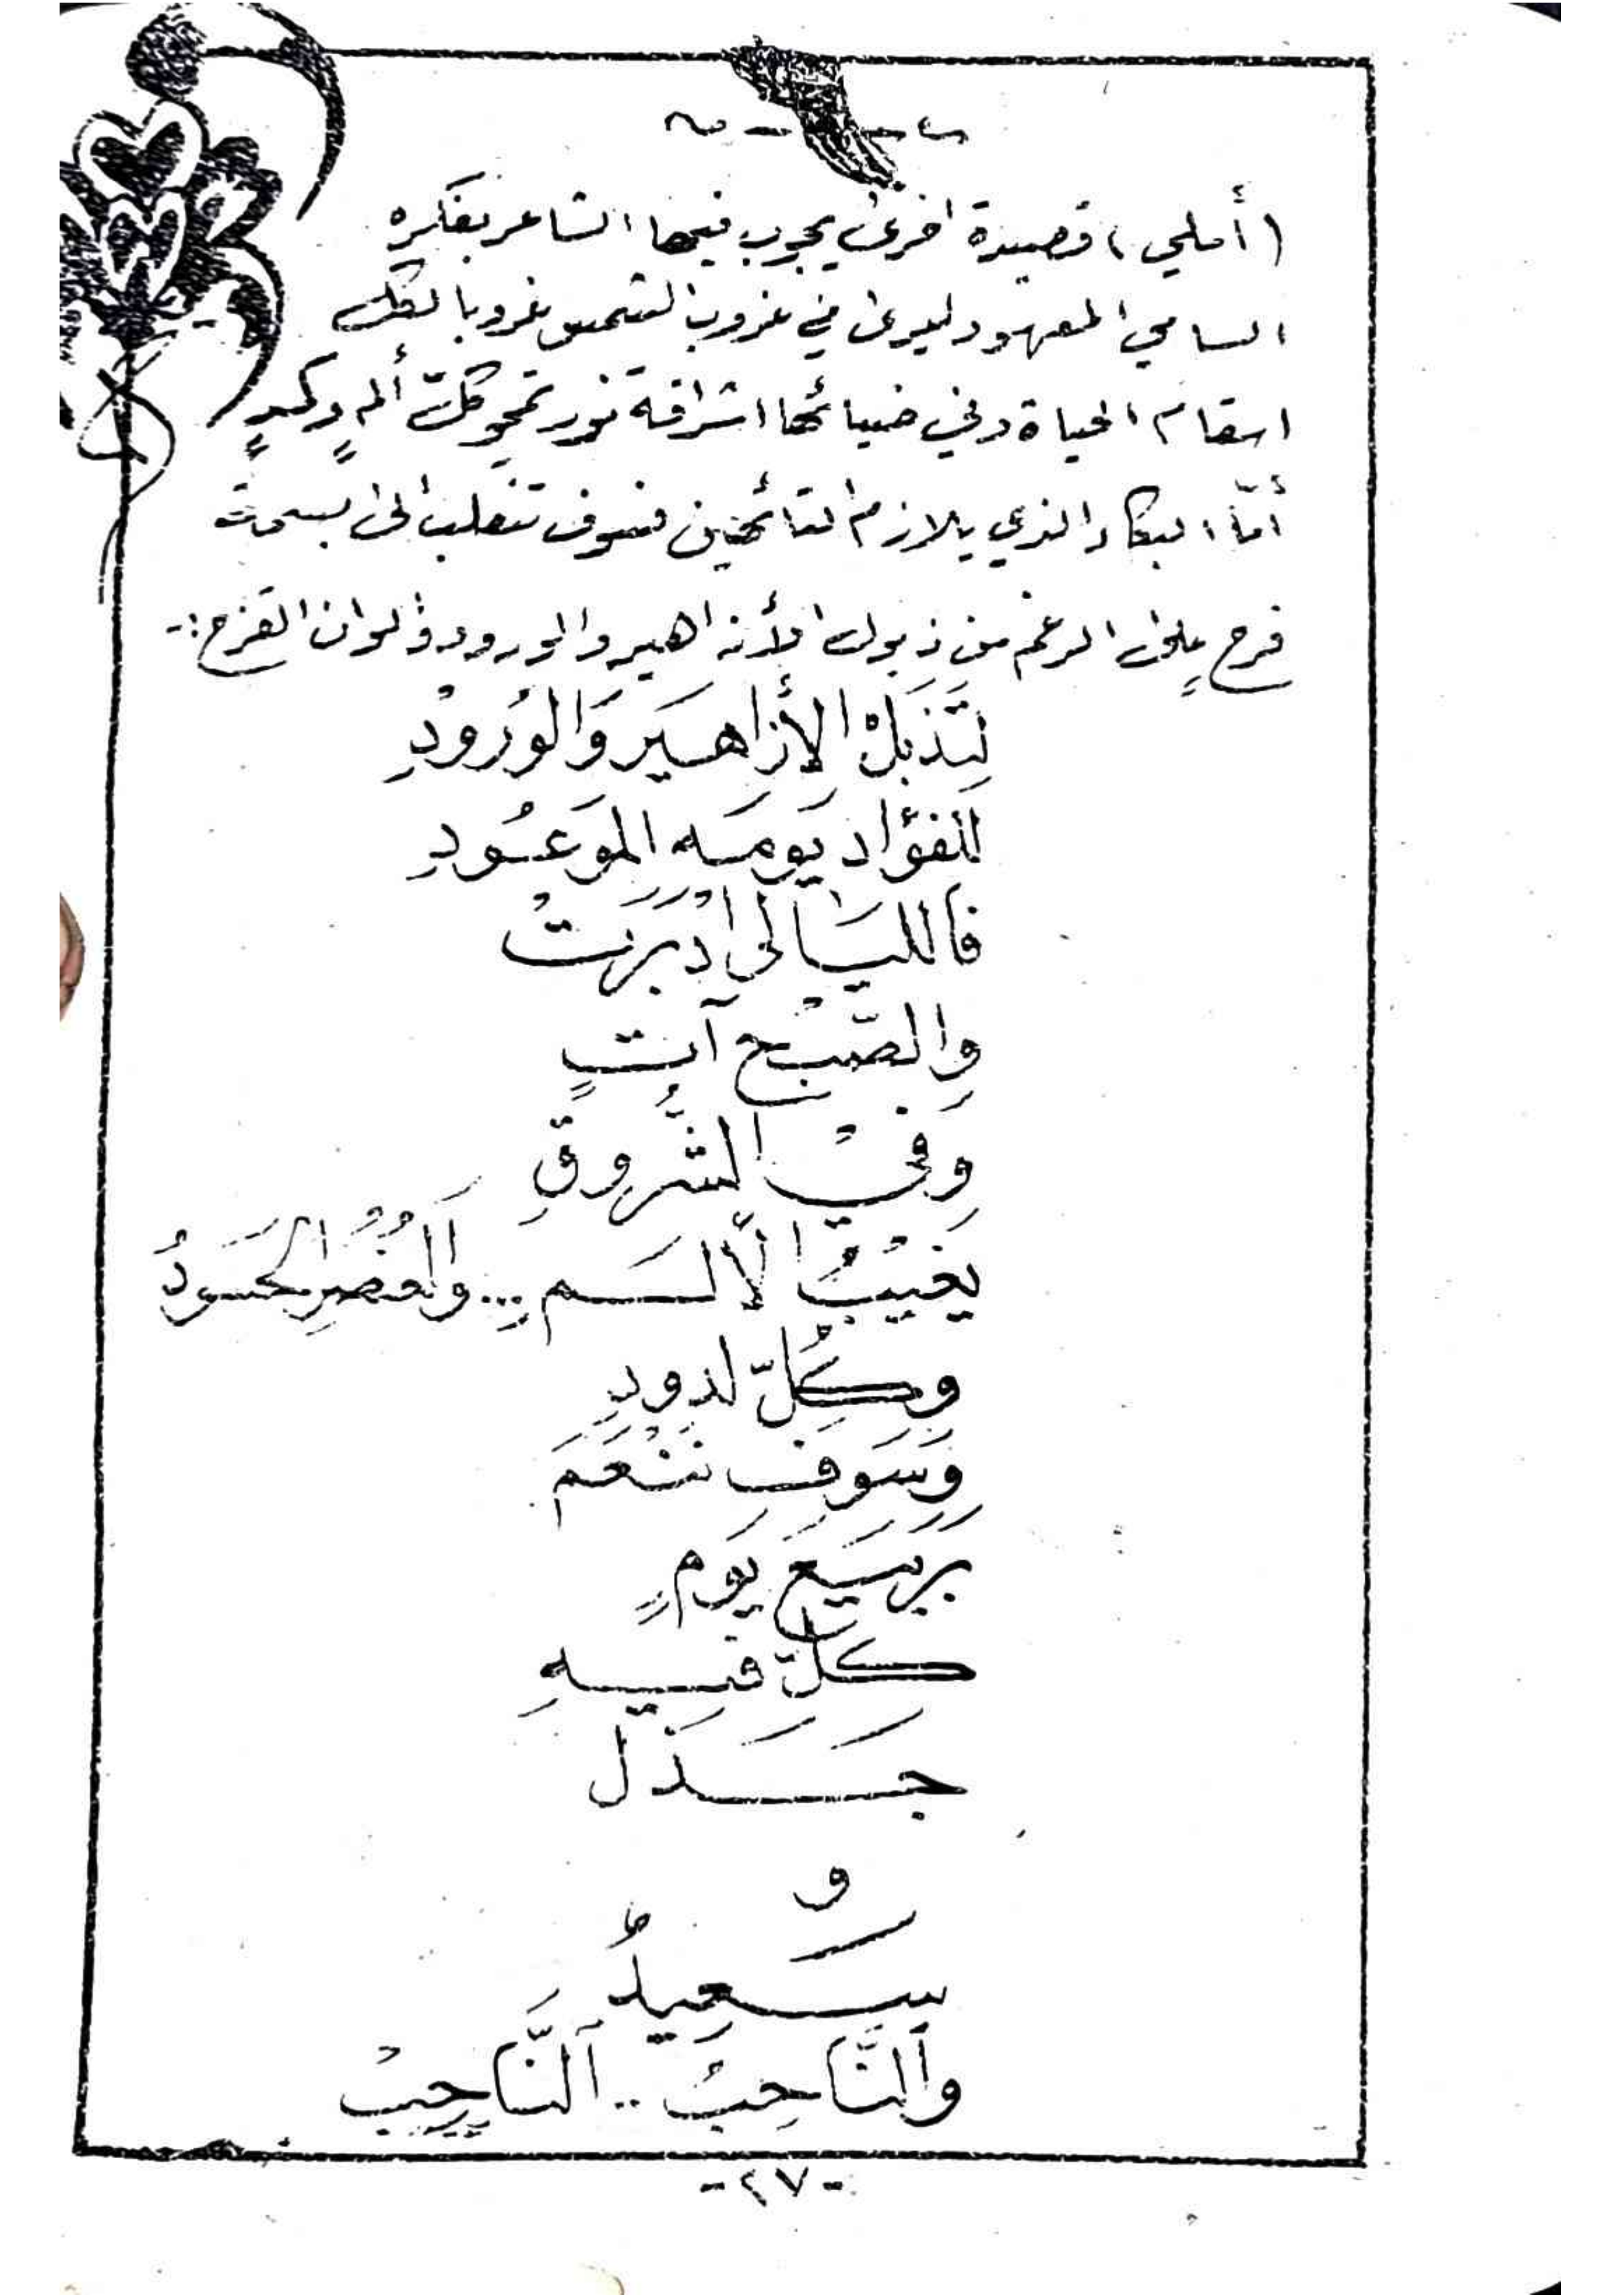 (أملي) قصيدة اخرى يجوب فيها الشاعر بفكره
السامي المعهود ليرى في غروب الشمس غروبا لكل
اسقام الحياة وفي ضيائها اشراقة نور تمحو كلّ ألمٍ وكمدٍ
أمّا البكاء الذي يلازم التائهين فسوف تنقلب الى بسمة
فرحٍ على الرغم من ذبول الأزاهير والورود وألوان القزح :-
لِتَذبَلْ الأزاهِير وَالوُرودِ
للفؤاد يَومَه المَوعُودِ
فالليَالي ادْبَرَتْ
وَالصّبْح آتٍ
وَفيْ الشُّروقِ
يَغيْبُ الألَم ... وَالعُنصر الحَسَودُ
وكُلّ لدودِ
وَسَوفَ نَنْعَم
بربيع يَومٍ
كلّ فيهِ
جَذَل
و
سَعيدُ
وَالنَّاحِبُ .. اَلنَّاحِبْ
-٢٧-